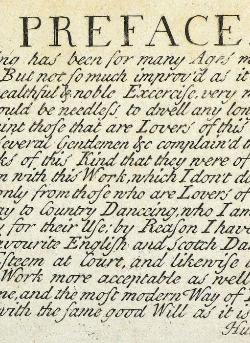 PREFACE
ing has been for many Ages m
But not so much improv'd as it
ealthful & noble Excercise, very n
ould be needless to dwell any lon
int those that are Lovers of this
everal Gentlemen &c complain'd o
ks of this Kind that they were o
n with this Work, which I don't d
only from those who are Lovers of
ay to Country Dancing, who I an
y for their Use; by Reason I have
avourite English and Scotch Da
steem at Court, and likewise o
Work more acceptable as well
ne, and the most modern Way of
with the same good Will as it is
He